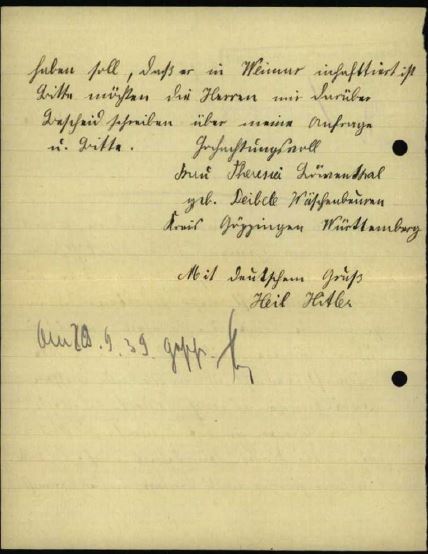 haben soll, daß er in Weimar inhafttiert ist
Bitte möchten die Herren mir darüber
Bescheid schreiben über meine Anfrage
u. Bitte. Hochachtungsvoll
Frau Theresei Löwenthal
geb. Deibele Wäschenbeuren
Kreis Göppingen Württemberg
Mit deutschem Gruß
Heil Hitler
9. 39